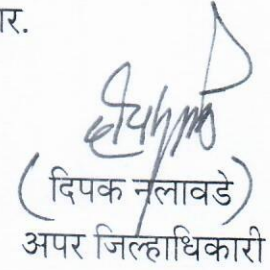 र.
( दिपक नलावडे )
अपर जिल्हाधिकारी